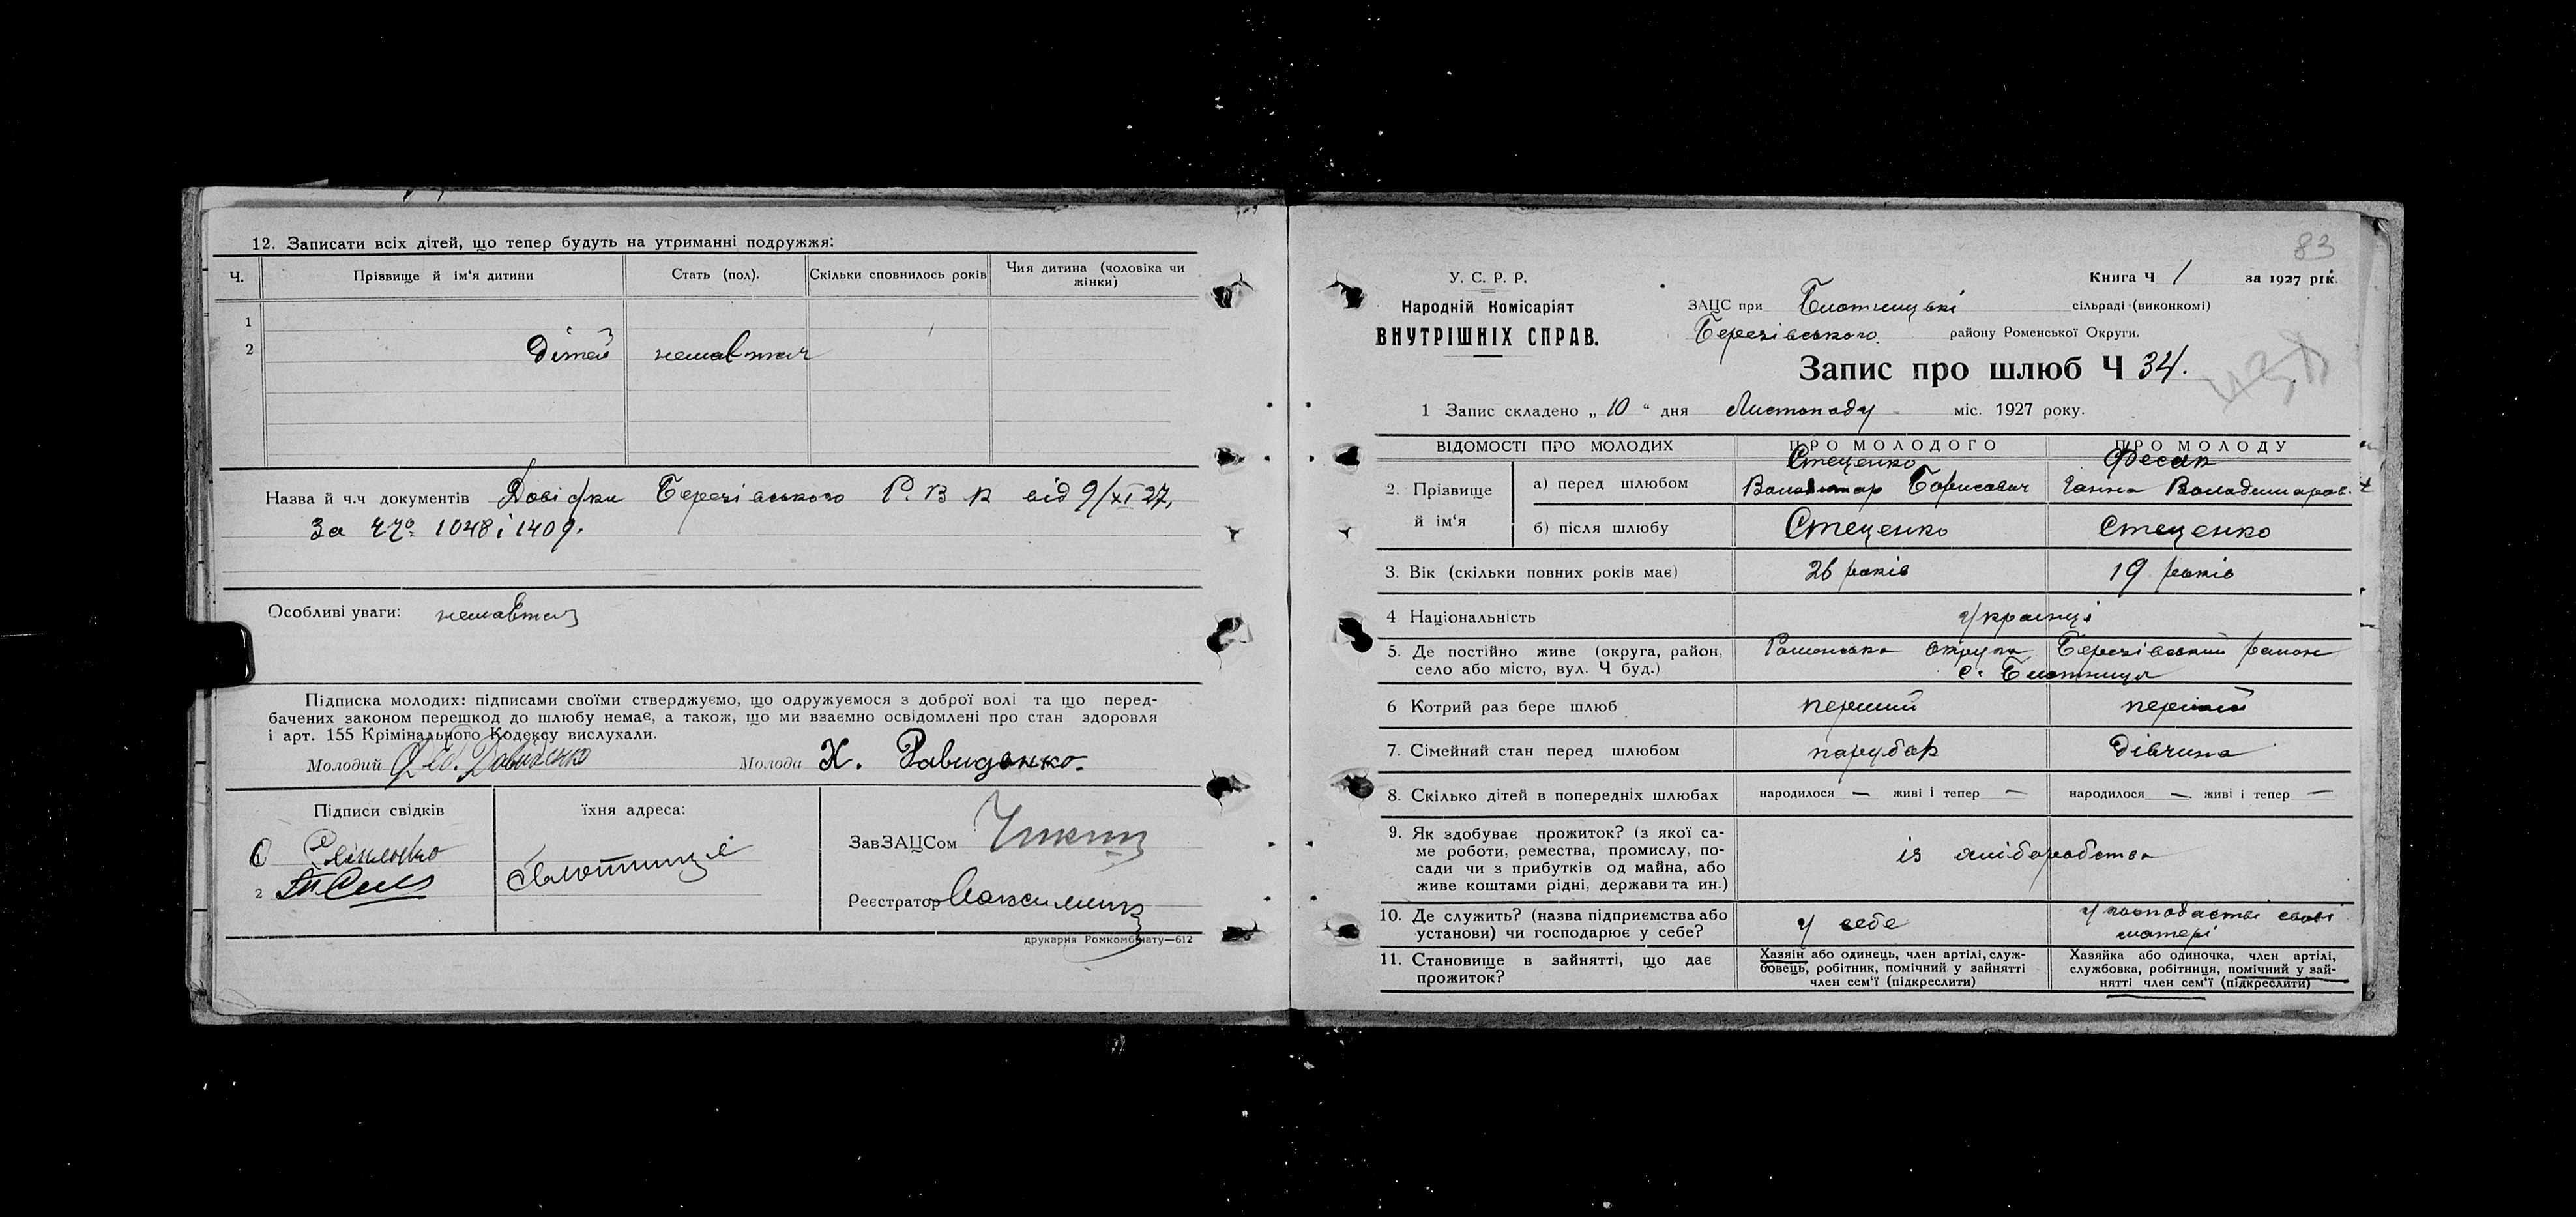 12. Записати всіх дітей, що тепер будуть на утриманні подружжя:
Ч. Прізвище й ім'я дитини Стать (пол). Скільки сповнилось років Чия дитина (чоловіка чи жінки)
1
2 Дітей
Назва й ч.ч документів Довідки Березівського Р. В К від 9/XI 27,
За 1048 і 1409.
Особливі уваги:
Підписка молодих: підписами своїми стверджуємо, що одружуємося з доброї волі та що перед-
бачених законом перешкод до шлюбу немає, а також, що ми взаємно освідомлені про стан здоровля
і арт. 155 Крімінального Кодексу вислухали.
Молодий Давиденко Молода Х. Давиденко.
Підписи свідків їхня адреса:
ЗавЗАЦСом
2
Реєстратор
друкарня Ромкомбінату—612
83
У. С. Р. Р.
Книга Ч 1 за 1927 рік.
Народній Комісаріят
ЗАЦС при сільраді (виконкомі)
ВНУТРІШНІХ СПРАВ.
Березівського району Роменської Округи.
Запис про шлюб Ч 34.
1 Запис складено „ 10 “ дня Листопаду міс. 1927 року.
ВІДОМОСТІ ПРО МОЛОДИХ ПРО МОЛОДОГО ПРО МОЛОДУ
2. Прізвище й ім'я
а) перед шлюбом Стеценко Володимар Борисович Фесак Ганна Володимиров.
б) після шлюбу Стеценко Стеценко
3. Вік (скільки повних років має) 26 років 19 років
4 Національність Українці
5. Де постійно живе (округа, район, Роменська округа Березівський район
село або місто, вул. Ч буд.) с. Блотниця
6 Котрий раз бере шлюб перший перший
7. Сімейний стан перед шлюбом парубок дівчина
8. Скілько дітей в попередніх шлюбах народилося — живі і тепер — народилося — живі і тепер —
9. Як здобуває прожиток? (з якої са-
ме роботи, ремества, промислу, по-
сади чи з прибутків од майна, або
живе коштами рідні, держави та ин.)
із хліборобства
10. Де служить? (назва підприємства або
установи) чи господарює у себе?
у себе
у господастві своєї
матері
11. Становище в зайнятті, що дає
прожиток?
Хазяін або одинець, член артілі, служ-
бовець, робітник, помічний у зайнятті
член сем'ї (підкреслити)
Хазяйка або одиночка, член артілі,
службовка, робітниця, помічний у зай-
нятті член сем'ї (підкреслити)